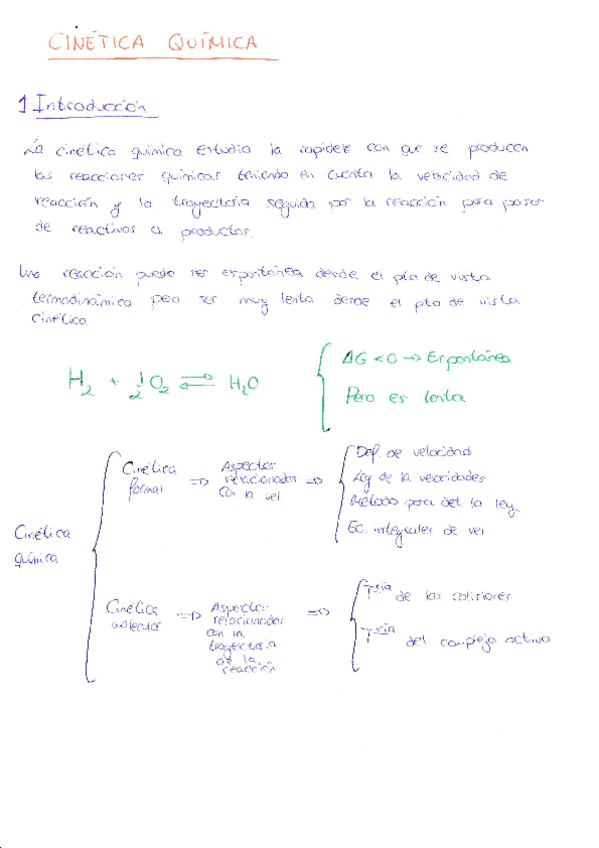 CINÉTICA QUÍMICA
1 Introducción
La cinética química estudia la rapidez con que se producen
las reacciones químicas teniendo en cuenta la velocidad de
reacción y la trayectoria seguida por la reacción para pasar
de reactivos a productos.
Una reacción puede ser espontánea desde el pto de vista
termodinámica pero ser muy lenta desde el pto de vista
cinético.
H₂ + ½ O₂ ⇌ H₂O
ΔG < 0 → Espontánea
Pero es lenta
Cinética
química
Cinética
formal
⇒ Aspectos
relacionados
con la vel
⇒ Def. de velocidad
Ley de la velocidades
Método para det la ley.
Ec. integrales de vel
Cinética
molecular
⇒ Aspectos
relacionados
con la
trayectoria
de la
reacción
⇒ Tría de las colisiones
Tría del complejo activo